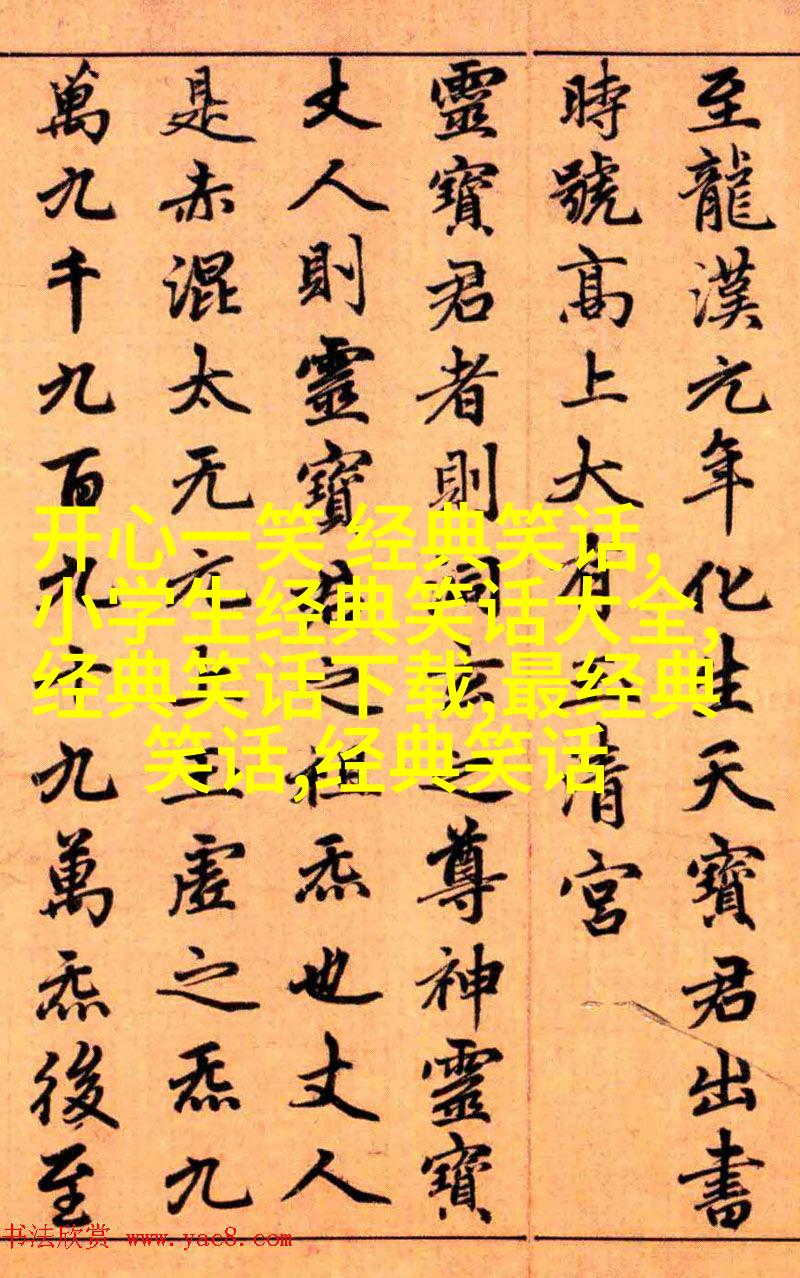 至龍漢元年化生天寶君出書
時號高上大有玉清宮
靈寶君者則洞玄之尊神靈寶
丈人則靈寶君之祖炁也丈人
是赤混太无元上玉虛之炁九
萬九千九百九十九萬炁後至
开心一笑 经典笑话,
小学生经典笑话大全,
经典笑话下载,最经典
笑话,经典笑话
书法欣赏 www.yac8.com